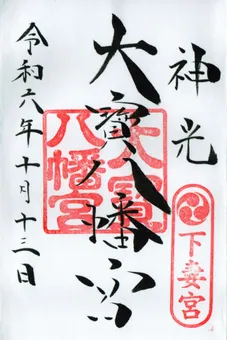 神光
下妻宮
大寳八幡宮
大寳八幡宮
令和六年十月十三日